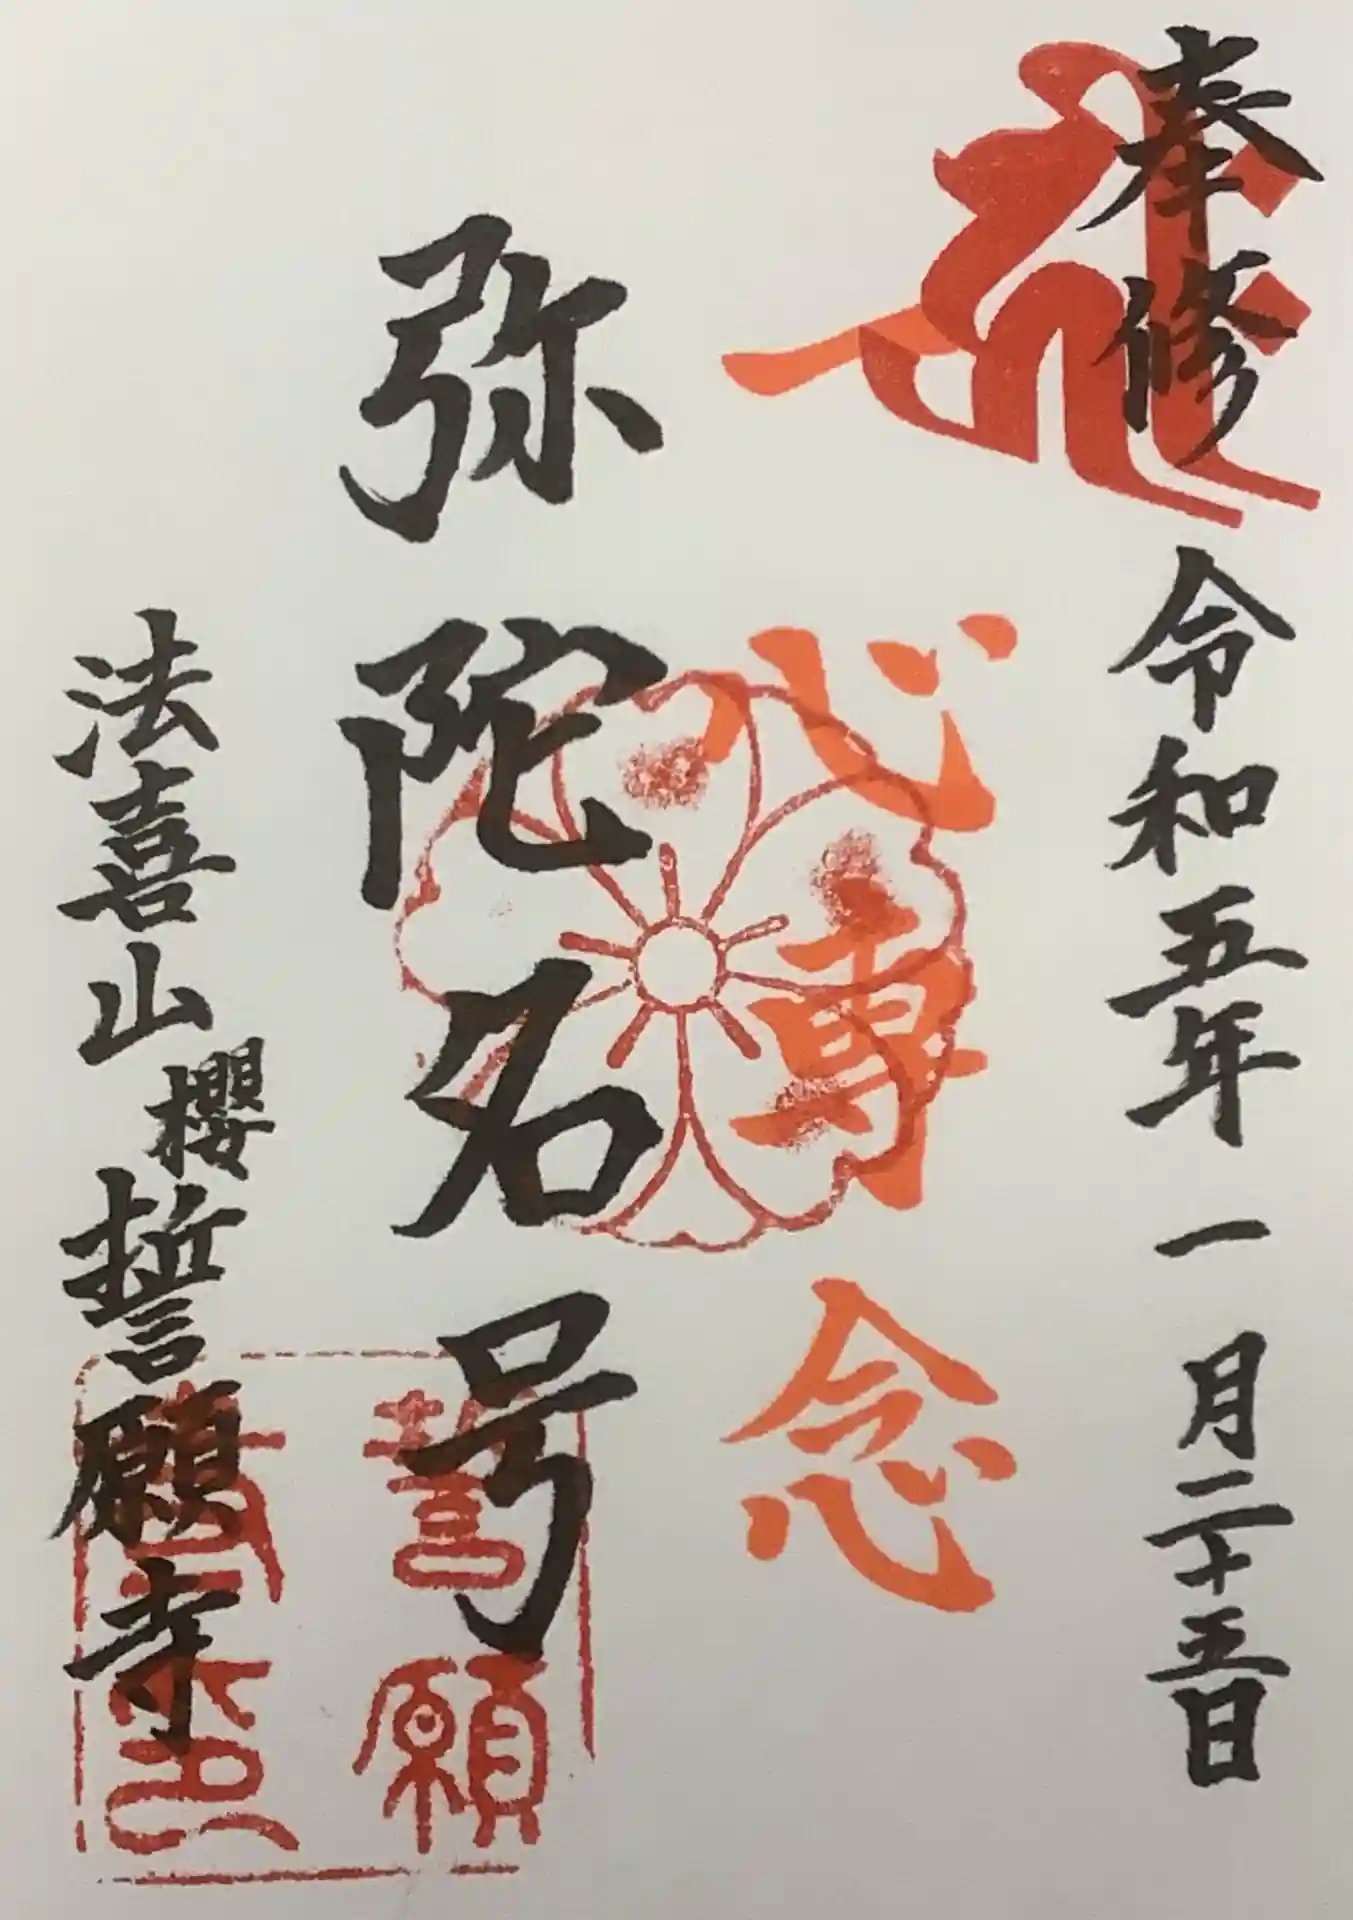 奉修 令和五年 一月二十五日
心專念
弥陀名号
法喜山 櫻 誓願寺
誓願
寺印